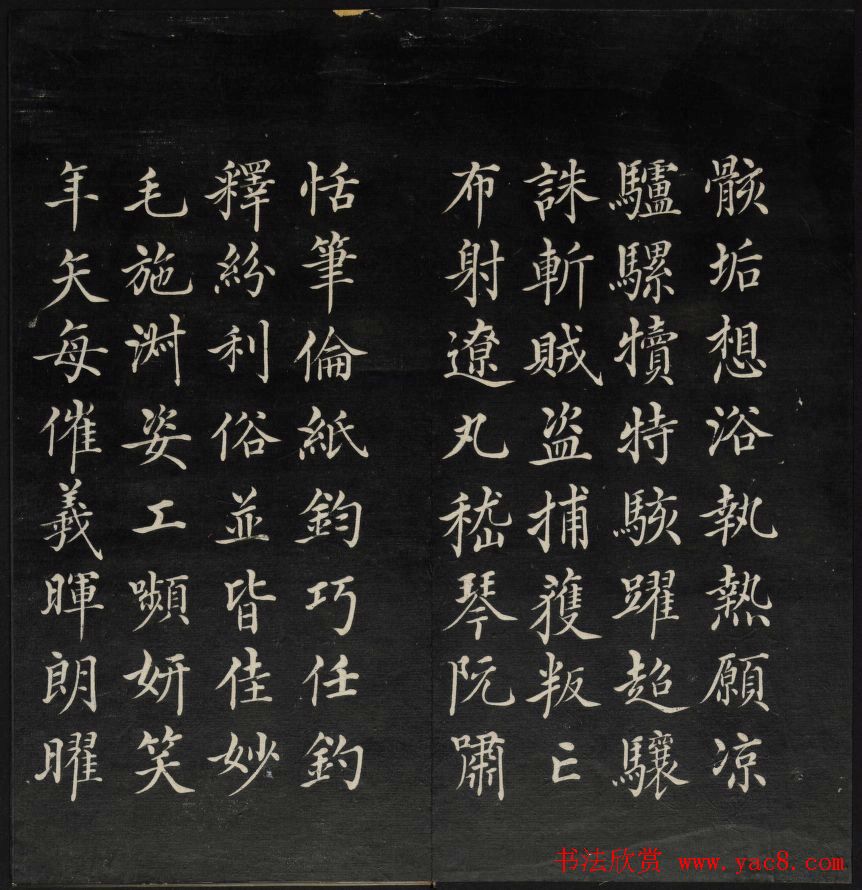 骸垢想浴執熱願凉
驢騾犢特駭躍超驤
誅斬賊盗捕獲叛亡
布射遼丸嵇琴阮嘯
恬筆倫紙鈞巧任釣
釋紛利俗並皆佳妙
毛施淑姿工嚬妍笑
年矢每催羲暉朗曜
书法欣赏 www.yac8.com